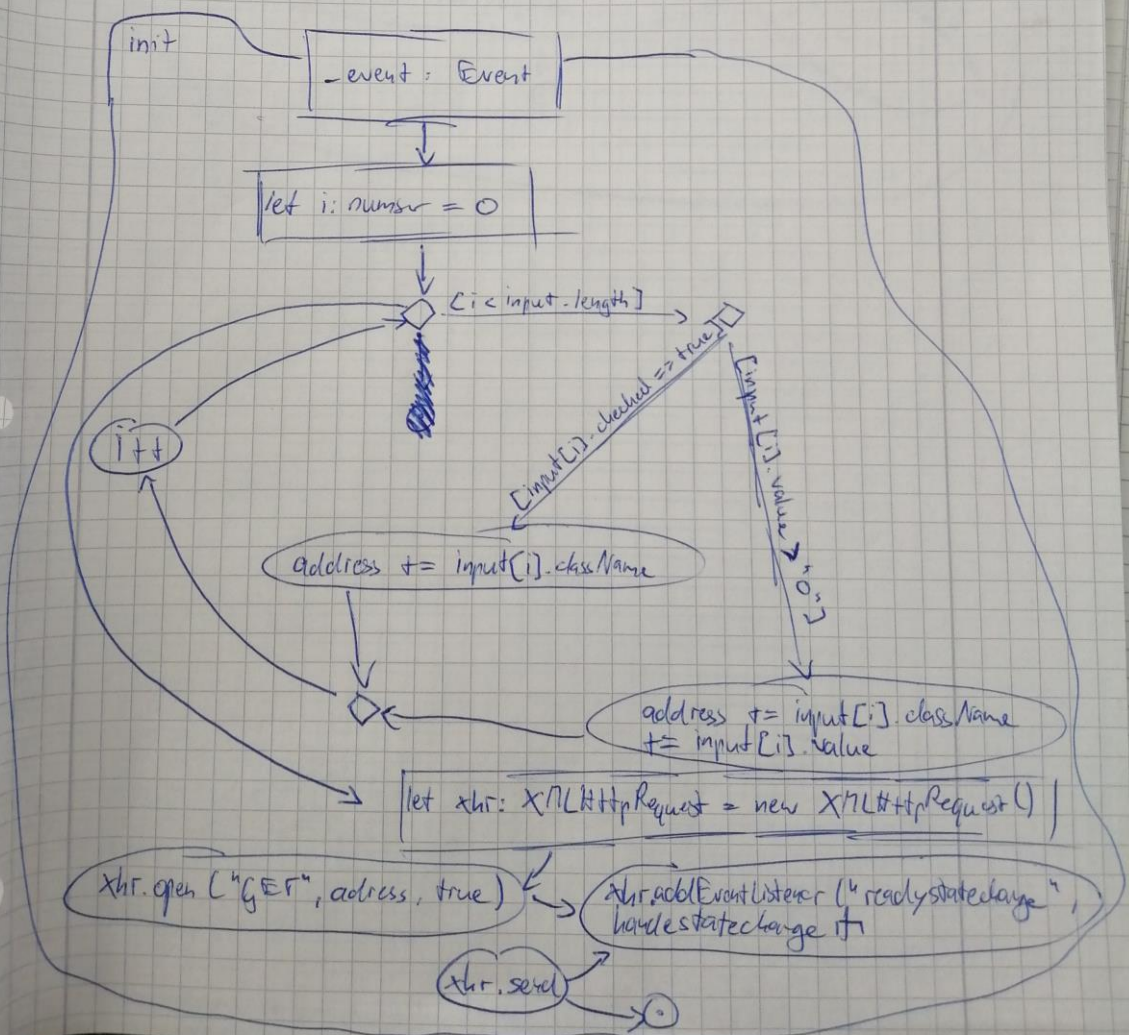 init
_event : Event
let i: numer = 0
[i < input.length]
[input[i].checked == true]
[input[i].value > "0"]
i++
address += input[i].className
address += input[i].className
+= input[i].value
let xhr: XMLHttpRequest = new XMLHttpRequest()
xhr.open ("GET", adress, true)
xhr.addEventListener ("readystatechange",
handestatechange
xhr.send